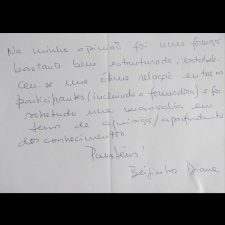 Na minha opinião foi uma formação
bastante bem estruturada, estabele-
ceu-se uma ótima relação entre os
participantes (incluindo a formadora) e foi
sobretudo uma mais valia em
termos de aquisição/aprofundamento
dos conhecimentos.
Parabéns!
Beijinhos